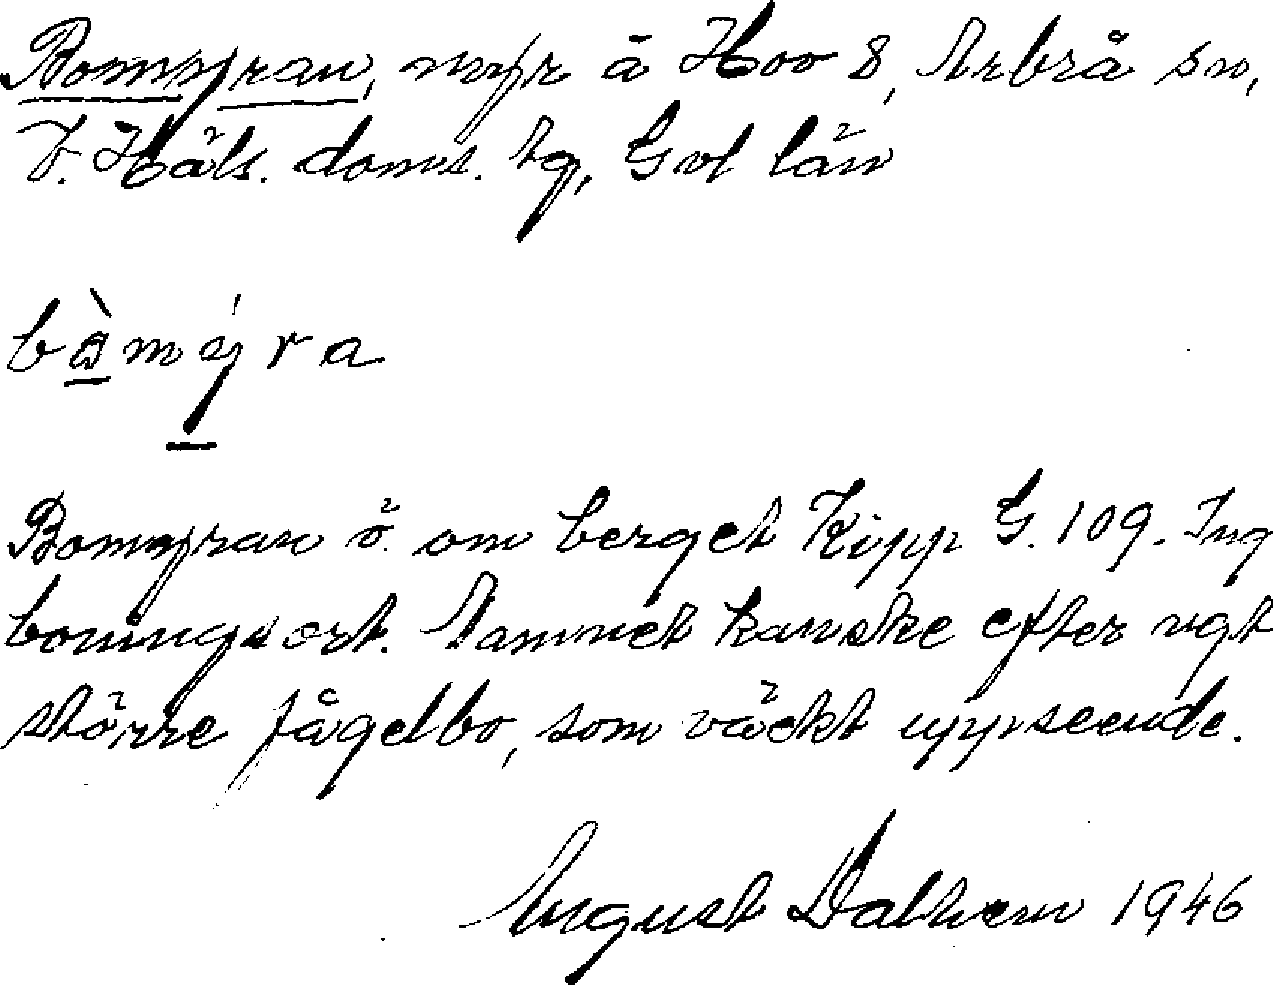 Bomyran, myr å Hoo 8, Arbrå sn,
V. Häls. doms. tg, Gvl län
bàmýra
Bomyran ö. om berget Kipp G. 109. Ing
boningsort. Namnet kanske efter ngt
större fågelbo, som väckt uppseende.
August Dalhem 1946